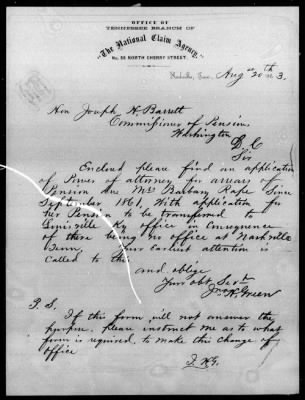 OFFICE OF
TENNESSEE BRANCH OF
"The National Claim Agency,"
No. 50 NORTH CHERRY STREET.
Nashville, Tenn., Aug 20th 3.
Hon Joseph H. Barrett
Commissioner of Pension,
Washington
D. C
Sir
Enclosed please find an application
of Power of attorney for arrears of
Pension due Mrs Barbary Rape Since
September 1861. With application for
her Pension to be transferred to
Louisville Ky office in Consequence
of there being no office at Nashville
Tenn, your earliest attention is
called to the
and oblige
Your obt Servt
Green
P. S.
If this form will not answer the
purpose. please instruct me as to what
form is required. to make this change of
office